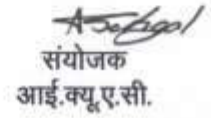 संयोजक
आई.क्यू.ए.सी.